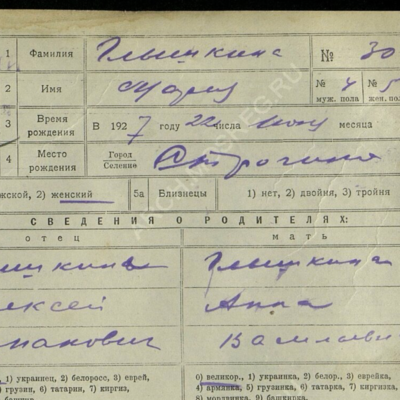 1 Фамилия Глышкина № 30
2 Имя Мария № 4 № 5
муж. пола жен. по
3 Время рождения В 1927 году 22 числа месяца
4 Место рождения Город Селение Строгино
жской, 2) женский 5а Близнецы 1) нет, 2) двойня, 3) тройня
СВЕДЕНИЯ О РОДИТЕЛЯХ:
отец мать
ышкин Глышкина
ексей Анна
Василь
1) украинец, 2) белоросс, 3) еврей, 0) великор., 1) украинка, 2) белор., 3) еврейка,
5) грузин, 6) татарин, 7) киргиз, 4) армянка, 5) грузинка, 6) татарка, 7) киргизка,
башкир 8) мордвинка, 9) башкирка